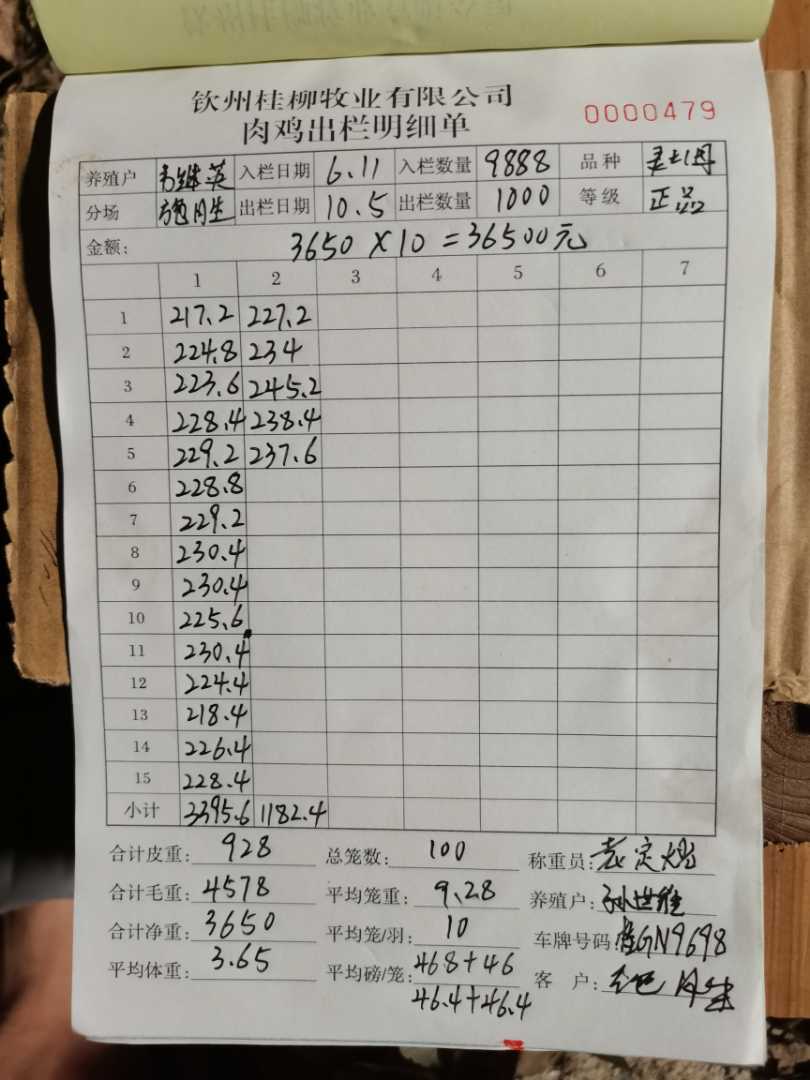 钦州桂柳牧业有限公司
肉鸡出栏明细单
0000479
养殖户 韦继英 入栏日期 6.11 入栏数量 9888 品种
分场 施月生 出栏日期 10.5 出栏数量 1000 等级 正品
金额: 3650 X 10 = 36500元
1 2 3 4 5 6 7
1 217.2 227.2
2 224.8 234
3 223.6 245.2
4 228.4 238.4
5 229.2 237.6
6 228.8
7 229.2
8 230.4
9 230.4
10 225.6
11 230.4
12 224.4
13 218.4
14 226.4
15 228.4
小计 3395.6 1182.4
合计皮重: 928 总笼数: 100 称重员: 袁定
合计毛重: 4578 平均笼重: 9.28 养殖户: 孙世维
合计净重: 3650 平均笼/羽: 10 车牌号码: GN9698
平均体重: 3.65 平均磅/笼: 46.8+46 客 户: 月生
46.4+46.4